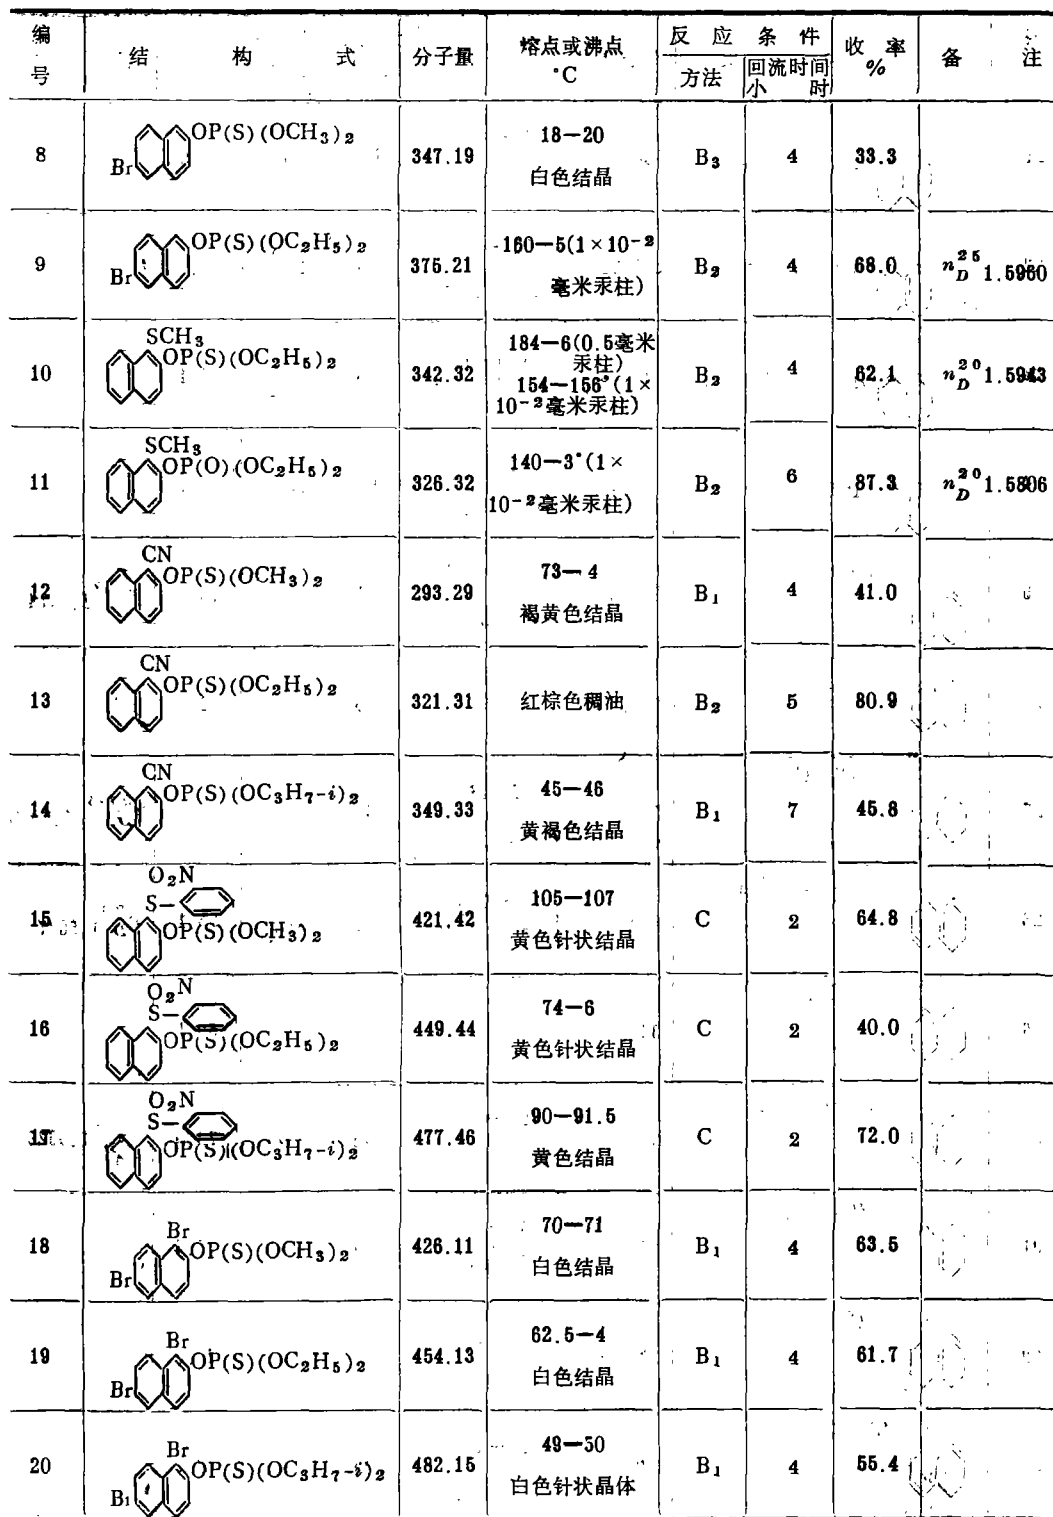 编号 结构式 分子量 熔点或沸点 °C 反应条件 收率 % 备注
方法 回流时间 小时
8 OP(S)(OCH₃)₂ Br 347.19 18—20 白色结晶 B₃ 4 33.3
9 OP(S)(OC₂H₅)₂ Br 375.21 160—5(1×10⁻² 毫米汞柱) B₂ 4 68.0 n_D^25 1.5960
10 SCH₃ OP(S)(OC₂H₅)₂ 342.32 184—6(0.5毫米汞柱) 154—156°(1×10⁻²毫米汞柱) B₂ 4 62.1 n_D^20 1.5943
11 SCH₃ OP(O)(OC₂H₅)₂ 326.32 140—3°(1×10⁻²毫米汞柱) B₂ 6 87.3 n_D^20 1.5806
12 CN OP(S)(OCH₃)₂ 293.29 73—4 褐黄色结晶 B₁ 4 41.0
13 CN OP(S)(OC₂H₅)₂ 321.31 红棕色稠油 B₂ 5 80.9
14 CN OP(S)(OC₃H₇-i)₂ 349.33 45—46 黄褐色结晶 B₁ 7 45.8
15 O₂N S— OP(S)(OCH₃)₂ 421.42 105—107 黄色针状结晶 C 2 64.8
16 O₂N S— OP(S)(OC₂H₅)₂ 449.44 74—6 黄色针状结晶 C 2 40.0
17 O₂N S— OP(S)(OC₃H₇-i)₂ 477.46 90—91.5 黄色结晶 C 2 72.0
18 Br OP(S)(OCH₃)₂ Br 426.11 70—71 白色结晶 B₁ 4 63.5
19 Br OP(S)(OC₂H₅)₂ Br 454.13 62.5—4 白色结晶 B₁ 4 61.7
20 Br OP(S)(OC₃H₇-i)₂ 482.15 49—50 白色针状晶体 B₁ 4 55.4